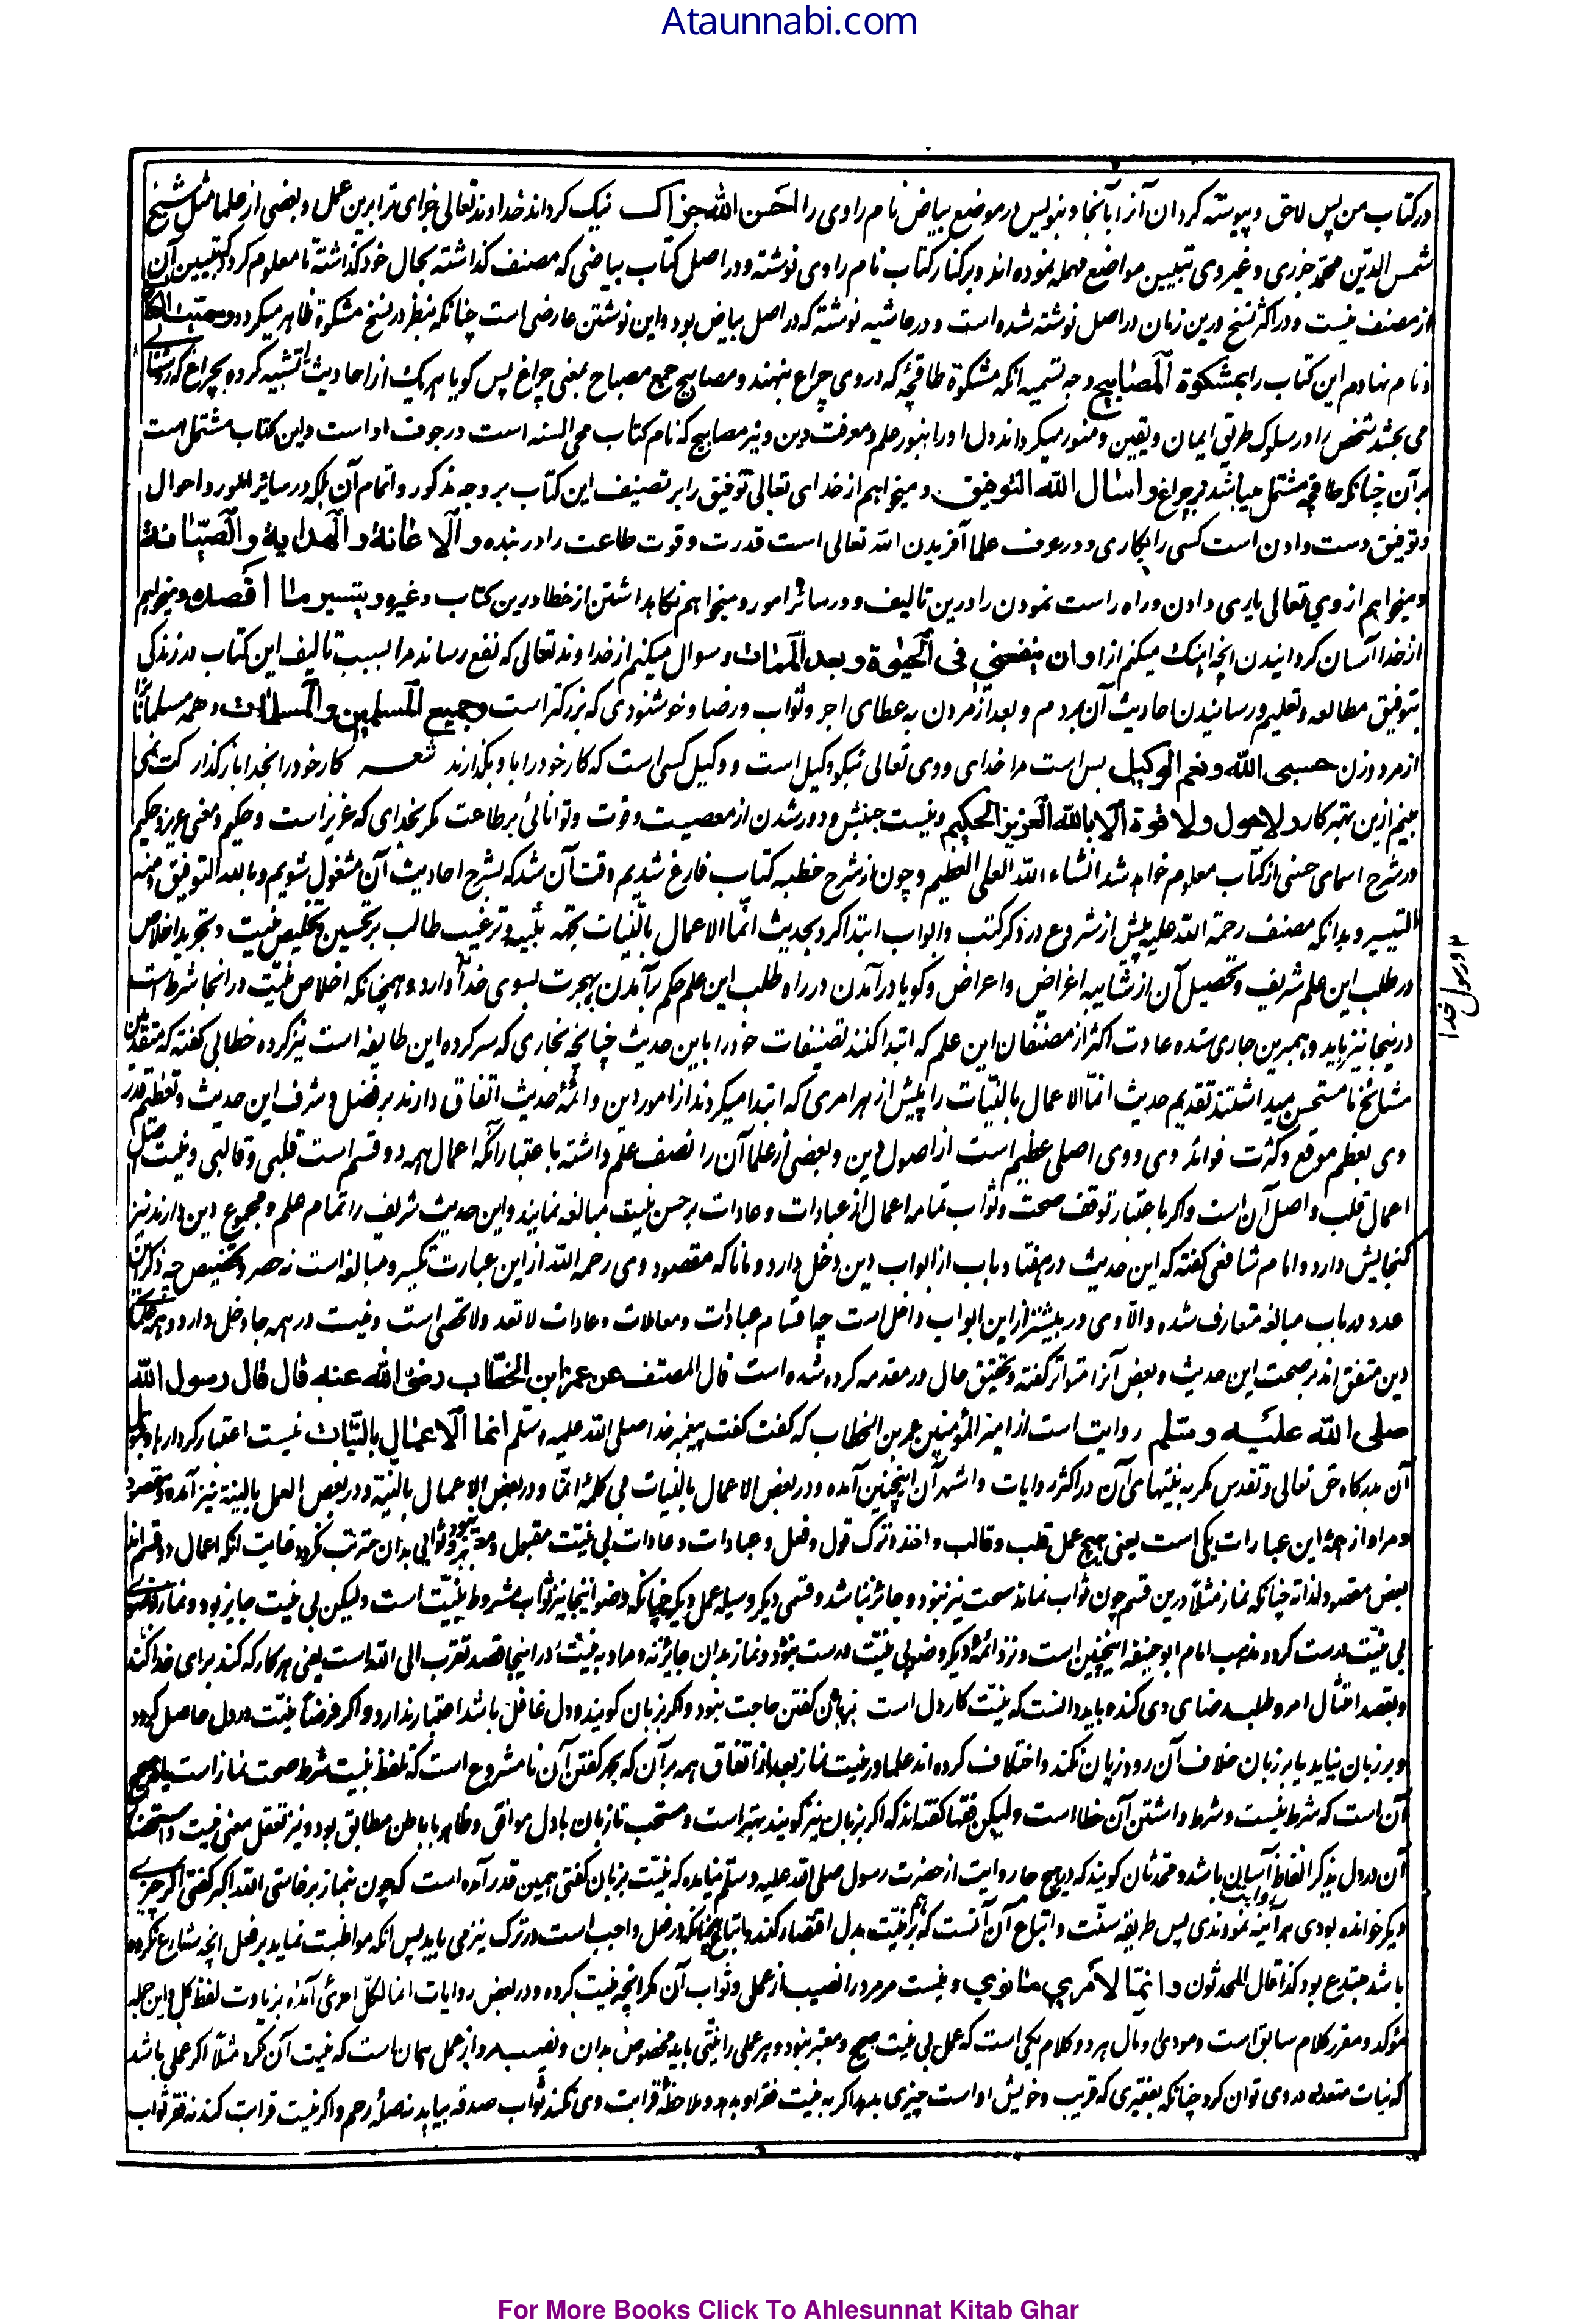 Ataunnabi.com
درکتاب من پس لاحق و پیوسته گردان آنرا بآنجا و بنویس در موضع بیاض نام راوی را احسن الله جزاک نیک گرداند خداوند تعالی جزای ترا برین عمل و بعضی از علما مثل شیخ
شمس الدین محمد جزری و غیر وی تبیین مواضع مهمله نموده اند و بر کنار کتاب نام راوی نوشته و در اصل کتاب بیاضی که مصنف گذاشته بحال خود گذاشته تا معلوم گردد که تبیین آن
از مصنف نیست و در اکثر نسخ درین زمان در اصل نوشته شده است و در حاشیه نوشته که در اصل بیاض بود و این نوشتن عارضی است چنانکه بنظر در نسخ مشکوة ظاهر میگردد وسمیت الکتاب
و نام نهادم این کتاب را بمشکوة المصابیح وجه تسمیه آنکه مشکوة طاقچه که در وی چراغ بنهند و مصابیح جمع مصباح بمعنی چراغ پس گویا هر یک از احادیث را تشبیه کرده بچراغ که روشنائی
می بخشد شخص را در سلوک طریق ایمان و یقین و منور میگرداند دل او را بنور علم و معرفت دین و نیز مصابیح که نام کتاب محی السنه است در جوف او است و این کتاب مشتمل است
بر آن چنانکه طاقچه مشتمل میباشد بر چراغ واسأل الله التوفیق و میخواهم از خدای تعالی توفیق را بر تصنیف این کتاب بر وجه مذکور و اتمام آن بلکه در سائر امور و احوال
و توفیق دست دادن است کسی را بکاری و در عرف علما آفریدن الله تعالی است قدرت و قوت طاعت را در بنده والاعانة والهدایة والصیانة
و میخواهم از وی تعالی یاری دادن و راه راست نمودن را درین تالیف و در سائر امور و میخواهم نگاهداشتن از خطا درین کتاب و غیره وتیسیر ما اقصده و میخواهم
از خدا آسان گردانیدن آنچه اینک میکنم از او ان ینفعنی فی الحیوة وبعد الممات و سوال میکنم از خداوند تعالی که نفع رساند مرا بسبب تالیف این کتاب در زندگی
بتوفیق مطالعه و تعلیم و رسانیدن احادیث آن بمردم و بعد از مردن به عطای اجر و ثواب و رضا و خوشنودی که بزرگتر است وجمیع المسلمین والمسلمات و همه مسلمانان را
از مرد و زن حسبی الله ونعم الوکیل بس است مرا خدای و وی تعالی نیکو وکیل است و وکیل کسی است که کار خود را باو بگذارند شعر کار خود را بخدا باز گذار کت نمی
بینم ازین بهتر کار ولا حول ولا قوة الا بالله العزیز الحکیم و نیست جنبش و دور شدن از معصیت و قوت و توانائی بر طاعت مگر بخدای که عزیز است و حکیم و معنی عزیز و حکیم
در شرح اسمای حسنی از کتاب معلوم خواهد شد انشاء الله العلی العظیم و چون از شرح خطبه کتاب فارغ شدیم وقت آن شد که بشرح احادیث آن مشغول شویم و بالله التوفیق ومنه
التیسیر و بدانکه مصنف رحمة الله علیه پیش از شروع در ذکر کتب و ابواب ابتدا کرد بحدیث انما الاعمال بالنیات بجهة تنبیه و ترغیب طالب بر تحسین و تخلیص نیت و تجرید اخلاص
در طلب این علم شریف و تحصیل آن از شایبه اغراض و اعراض و گویا در آمدن در راه طلب این علم حکم بر آمدن بهجرت بسوی خدا دارد و همچنانکه اخلاص نیت در آنجا شرط است
۲ و رسول خدا
درینجا نیز باید و همبرین جاری شده عادت اکثر از مصنفان این علم که ابتدا کنند تصنیفات خود را باین حدیث چنانچه بخاری که سر کرده این طایفه است نیز کرده خطابی گفته که متقدمین
مشائخ ما مستحسن میداشتند تقدیم حدیث انما الاعمال بالنیات را پیش از هر امری که ابتدا میکردند از امور دین و ائمه حدیث اتفاق دارند بر فضل و شرف این حدیث و تعظیم قدر
وی بعظم موقع و کثرت فوائد وی و وی اصلی عظیم است از اصول دین و بعضی از علما آن را نصف علم داشته باعتبار آنکه اعمال همه دو قسم است قلبی و قالبی و نیت افضل
اعمال قلب و اصل آن است و اگر باعتبار توقف صحت و ثواب تمامه اعمال از عبادات و عادات بر حسن نیت مبالغه نمایند و این حدیث شریف را تمام علم و مجموع دین دارند نیز
گنجایش دارد و امام شافعی گفته که این حدیث در هفتاد باب از ابواب دین دخل دارد و مانا که مقصود وی رحمه الله از این عبارت تکثیر و مبالغه است نه حصر و تخصیص چه ذکر این
عدد در باب مبالغه متعارف شده و الا وی در بیشتر از این ابواب داخل است چه اقسام عبادات و معاملات و عادات لا تعد و لا تحصی است و نیت در همه جا دخل دارد و همه علمای
دین متفق اند بر صحت این حدیث و بعض آنرا متواتر گفته و تحقیق حال در مقدمه کرده شده است قال المصنف عن عمر ابن الخطاب رضی الله عنه قال قال رسول الله
صلی الله علیه وسلم روایت است از امیر المؤمنین عمر بن الخطاب که گفت گفت پیغمبر خدا صلی الله علیه وسلم انما الاعمال بالنیات نیست اعتبار کردارها و قبول
آن بدرگاه حق تعالی و تقدس مگر به نیتهای آن در اکثر روایات و اشهر آن اینچنین آمده و در بعض الاعمال بالنیات بی کلمه انما و در بعض الاعمال بالنیة و در بعض العمل بالنیة نیز آمده و مقصود
و مراد از همه این عبارات یکی است یعنی هیچ عمل قلب و قالب و اخذ و ترک قول و فعل و عبادات و عادات بی نیت مقبول و معتبر نبود و ثوابی بدان مترتب نگردد غایت آنکه اعمال دو قسم اند
بعض مقصود لذاته چنانکه نماز مثلا درین قسم چون ثواب نماند صحت نیز نبود و جائز نباشد و قسمی دیگر وسیله عمل دیگر چنانکه وضو اینجا نیز ثواب مشروط بنیت است ولیکن بی نیت جایز بود و نماز بوضوی
بی نیت درست گردد مذهب امام ابو حنیفه اینچنین است و نزد ائمه دیگر وضو بی نیت درست نبود و نماز بدان جائز نه و مراد به نیت در اینجا قصد تقرب الی الله است یعنی هر کار که کند برای خدا کند
و بقصد امتثال امر و طلب رضای وی کند و باید دانست که نیت کار دل است بزبان گفتن حاجت نبود و اگر بزبان گویند و دل غافل باشد اعتبار ندارد و اگر فرضا نیت در دل حاصل گردد
و بر زبان نیاید یا بر زبان خلاف آن رود زیان نکند و اختلاف کرده اند علما در نیت نماز بعد از اتفاق همه بر آن که بجهر گفتن آن نا مشروع است که تلفظ نیت شرط صحت نماز است یا نه صحیح
آن است که شرط نیست و شرط داشتن آن خطا است ولیکن فقها گفته اند که اگر بزبان نیز گویند بهتر است و مستحب تا زبان با دل موافق و ظاهر با باطن مطابق بود و نیز تعقل معنی نیت و استحضار
آن در دل بذکر الفاظ آسان باشد و محدثان گویند که در هیچ جا روایت از حضرت رسول صلی الله علیه وسلم نیامده که نیت بزبان گفتی همین قدر آمده است که چون بنماز برخاستی الله اکبر گفتی اگر چیزی
دیگر خوانده بودی هر آئینه روایت نمودندی پس طریقه سنت و اتباع آن آنست که بر نیت بدل اقتصار کند و اتباع همچنانکه در فعل واجب است در ترک نیز می باید پس آنکه مواظبت نماید بر فعل آنچه شارع نکرده
باشد مبتدع بود کذا قال المحدثون وانما لامرئ ما نوی و نیست مر مرد را نصیب از عملی و ثواب آن مگر آنچه نیت کرده و در بعض روایات انما لکل امرئ آمده بزیادت لفظ کل و این جمله
مؤکد و مقرر کلام سابق است و مودی او مآل هر دو کلام یکی است که عمل بی نیت صحیح و معتبر نبود و هر عملی را نیتی باید مخصوص بدان و نصیب مرد از عمل همان است که نیت آن کرد مثلا اگر عملی باشد
که نیات متعدده در وی توان کرد چنانکه بفقیری که قریب و خویش او است چیزی بدهد اگر به نیت فقر او بدهد و ملاحظه قرابت وی نکند ثواب صدقه بیابد نه صله رحم و اگر نیت قرابت کند نه فقر ثواب
For More Books Click To Ahlesunnat Kitab Ghar